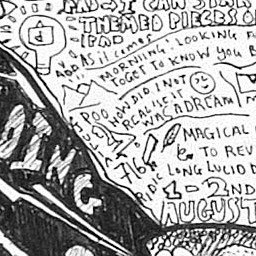 I CAN STAR
THEMED PIECES O
IPAD
AS it comes
MORNIN'. LOOKING F
TO GET TO KNOW YOU B
POO
HOW DID I NOT
REALISE IT
WAS A DREAM
MAGICAL
TO REV
RIDIC LONG LUCID D
1-2ND
AUGUST
DOING